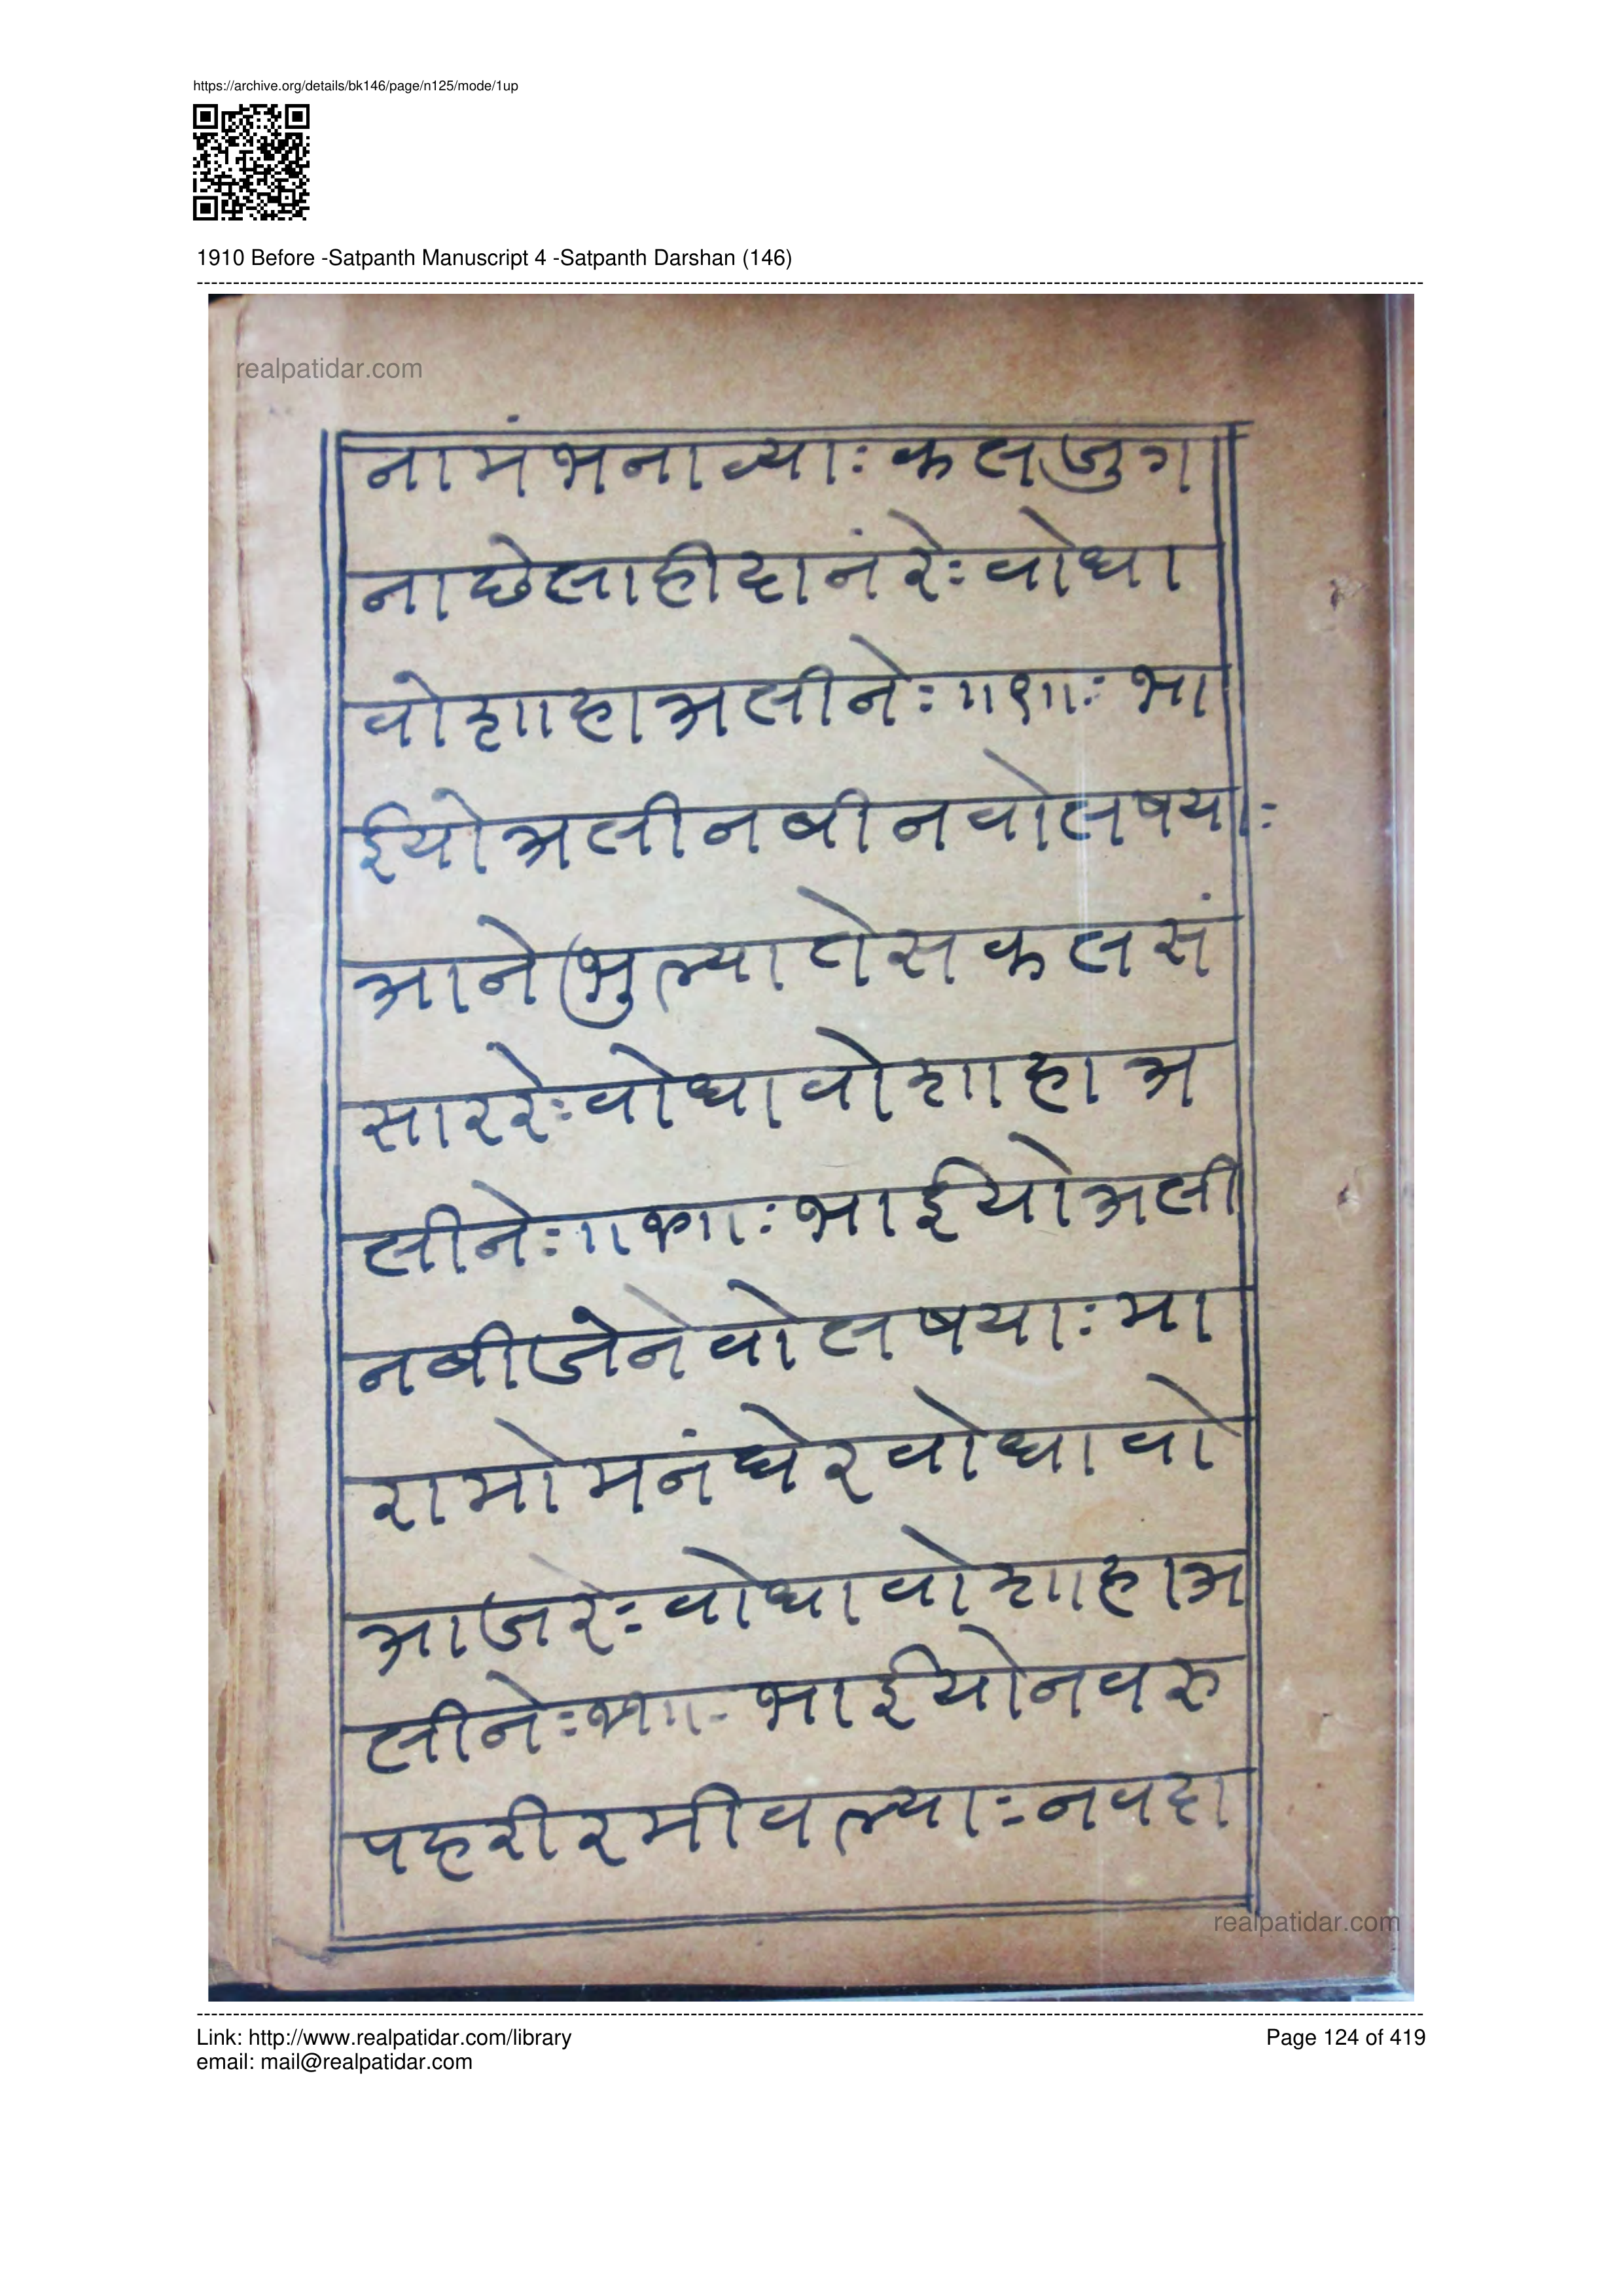 https://archive.org/details/bk146/page/n125/mode/1up
1910 Before -Satpanth Manuscript 4 -Satpanth Darshan (146)
realpatidar.com
नामंभनाव्याः कलजुग
नाछेसाहीदानंरेः वोधा
वोशाहाअलीनेः ॥९॥ः भा
ईयोअलीनबीनवोलषयाः
आनेभुल्यातेसकलसं
साररेः वोधावोशाहाअ
लीनेः भाईयोअली
नबीजेनेवोलषयाः मा
रामोमनंघेरवोधावो
आजरेः वोधावोशाहाअ
लीनेः भाईयोनवरु
पहरीरमीवल्याः नवदा
realpatidar.com
Link: http://www.realpatidar.com/library
Page 124 of 419
email: mail@realpatidar.com